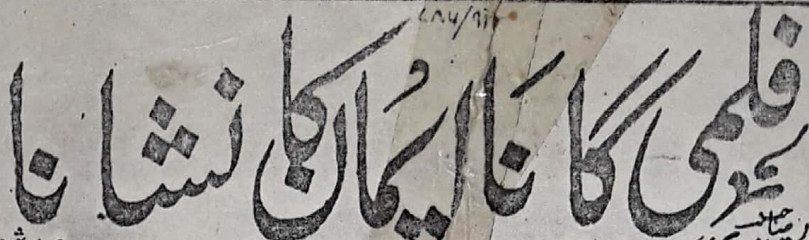 ۷۸۶/۹۲
فلمی گانا ایمان کا نشانا